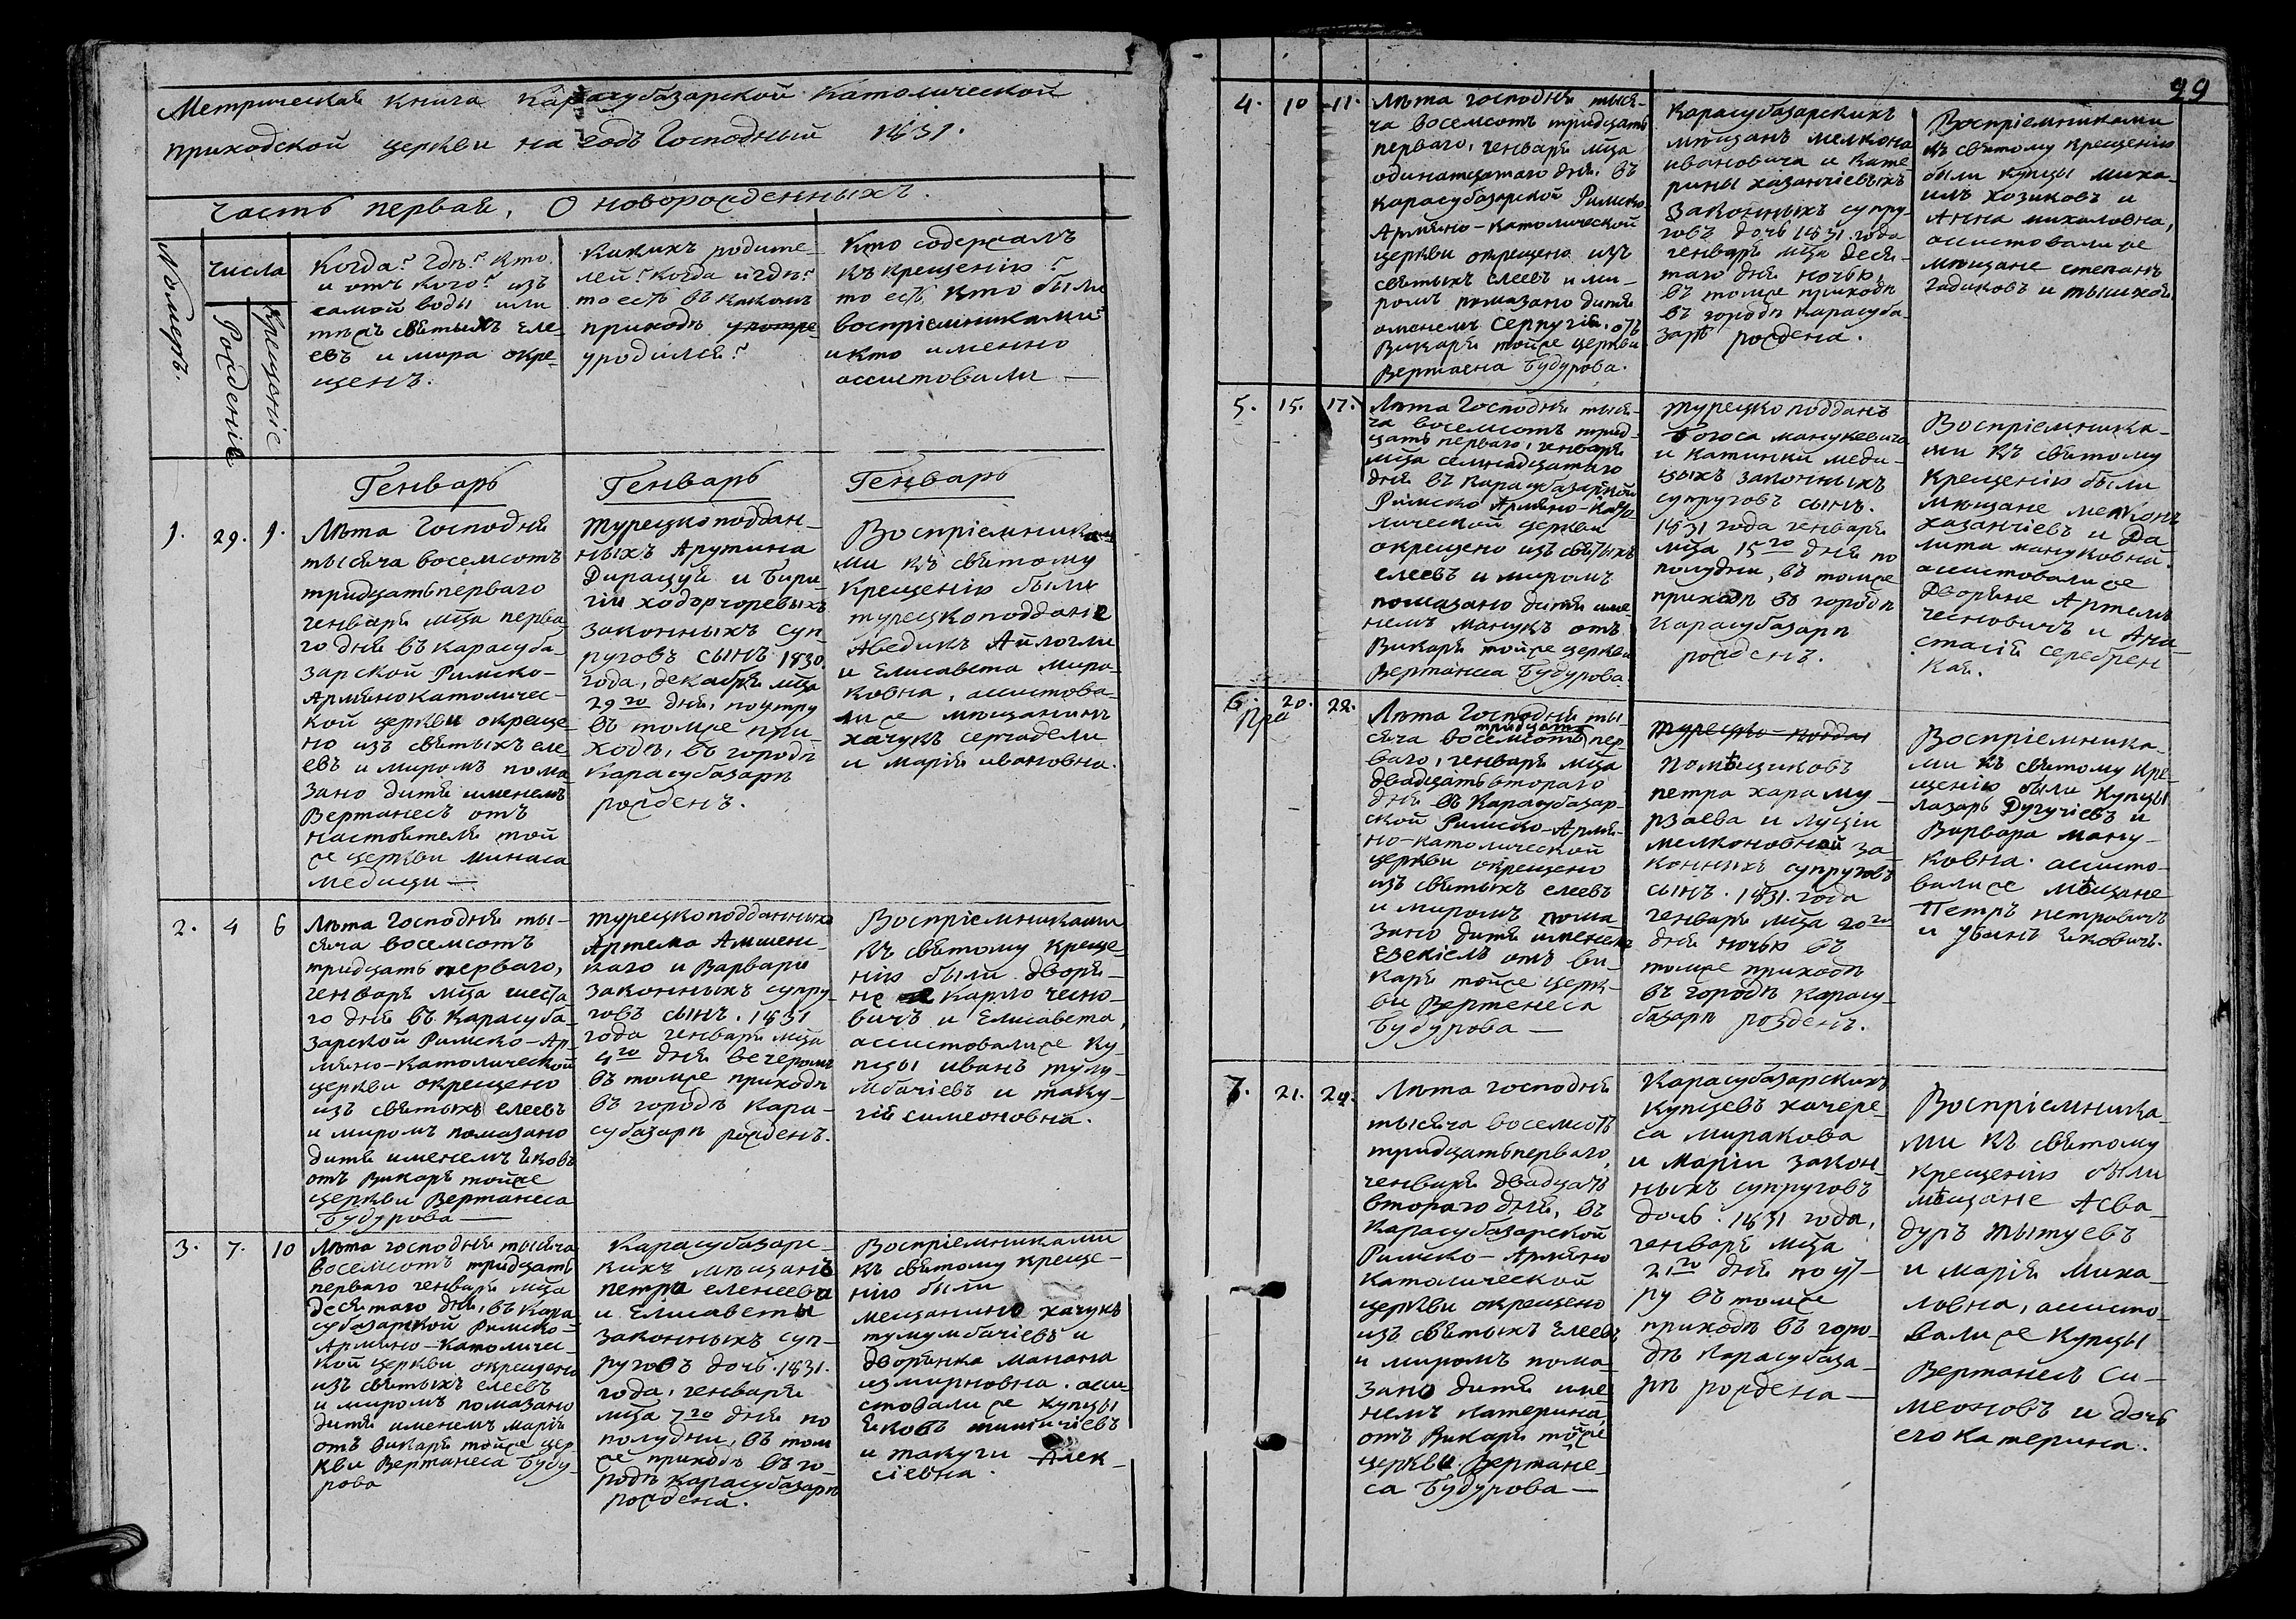 Метрическая книга Карасубазарской Католической
приходской церкви на годъ Господный 1831.
Часть первая, О новорожденныхъ.
Номеръ.
числа
Рожденiе
Крещенiе
Когда? Гдѣ? Кто
и отъ кого? изъ
самой воды или
тѣхъ святыхъ еле-
евъ и мира окре-
щенъ.
Какихъ родите-
лей? когда и гдѣ?
то есть въ какомъ
приходѣ
уродился?
Кто содержалъ
къ крещенiю?
то есть кто были
воспрiемниками
и кто именно
ассистовали —
Генварь
Генварь
Генварь
1. 29. 1.
Лѣта Господня
тысяча восемсотъ
тридцать перваго
генваря мца перва-
го дня въ карасуба-
зарской Римско-
Армянокатоличес-
кой церкви окреще
но изъ святыхъ еле
евъ и миромъ пома
зано дитя именемъ
Вертанесъ отъ
настоятеля той
же церкви минаса
медици —
турецкоподдан-
ныхъ Арутина
Дирацуя и Бири
гiи ходорчоревыхъ
законныхъ суп
руговъ сынъ 1830.
года, декабря мца
29го дня, поутру
въ томже при-
ходѣ, въ городѣ
Карасубазарѣ
рожденъ.
Воспрiемника
ми къ святому
Крещенiю были
турецкоподдане
Аведикъ Айлогли
и Елисавета Миро-
ковна, ассистова-
ли же мѣщанинъ
хачукъ серчадели
и марiя ивановна.
2. 4 6
Лѣта господня ты-
сяча восемсотъ
тридцать перваго,
генваря мца шеста
го дня въ Карасуба-
зарской Римско-Ар-
мяно-католической
церкви окрещено
изъ святыхъ елеевъ
и миромъ помазано
дитя именемъ Яковъ
отъ Викаря тойже
церкви Вертанеса
Будурова —
турецкоподданныхъ
Артема Амшени-
каго и Варвары
законныхъ супру-
говъ сынъ. 1831
года генваря мца
4го дня вечеромъ
въ томже приходѣ
въ городѣ Кара-
субазарѣ рожденъ.
Воспрiемниками
къ святому креще-
нiю были дворя-
не Карло чесно-
вичъ и Елисавета,
ассистовали же ку-
пцы иванъ тулу-
мбачiевъ и таку-
гiй симеоновна.
3. 7. 10
Лѣта господня тысяча
восемсотъ тридцать
перваго генваря мца
десятаго дня, въ Кара
субазарской Римско-
Армяно-Католичес-
кой церкви окрещено
изъ святыхъ елеевъ
и миромъ помазано
дитя именемъ марiя
отъ викаря тойже цер
кви Вертанеса Буду-
рова
Карасубазарс-
кихъ мѣщанъ
петра еленеева
и Елисаветы
законныхъ суп-
руговъ дочь. 1831.
года, генваря
мца 7го дня по
полудни, въ том
же приходѣ въ го-
родѣ Карасубазарѣ
рождена.
Воспрiемниками
къ святому креще-
нiю были
мещанино хачукъ
тумумбачiевъ и
дворянка манана
измирновна. асси-
стовали же купцы
Яковъ
и такуги Алек-
сiевна.
29
4. 10 11.
Лѣта господня тыся-
ча восемсотъ тридцать
перваго, генваря мца
одинатцатаго дня, въ
карасубазарской Римско-
Армяно-католической
церкви окрещено изъ
святыхъ елеевъ и ми-
ромъ помазано дитя
именемъ Серпугiя. отъ
Викаря тойже церкви
Вертаена Будурова.
Карасубазарскихъ
мѣщанъ мелкона
ивановича и кате
рины хазанчiевыхъ
законныхъ супру-
говъ дочь 1831. года
генваря мца деся-
таго дня ночью,
въ томже приходѣ
въ городѣ Карасуба-
зарѣ рождена.
Воспрiемниками
къ святому крещенiю
были купцы миха-
илъ хозиковъ и
Анна михаловна,
ассистовали же
мѣщане степанъ
Гадиковъ и
5. 15. 17.
Лѣта Господня тыся-
ча восемсотъ трид-
цать перваго, генваря
мца семнадцатаго
дня въ Карасубазарской
Римско Армяно-Като-
лической церкви
окрещено изъ святыхъ
елеевъ и миромъ
помазано дитя име
немъ манукъ отъ
Викаря тойже церкви
Вертанеса Будурова.
турецко подданъ
Богоса манукевича
и катинки меди-
цыхъ законныхъ
супруговъ сынъ.
1831 года генваря
мца 15го дня по
полудни, въ томже
приходѣ въ городѣ
Карасубазарѣ
рожденъ.
Воспрiемника-
ми къ святому
крещенiю были
мѣщане мелконъ
хазанчiевъ и Да-
лита мануковна.
ассистовали же
Дворяне Артемъ
чесновичъ и Ана-
стасiя серебрен
кая.
6. 20. 22.
Пра
Лѣта Господня ты-
сяча восемсотъ тридцать пер-
ваго, генваря мца
двадцать втораго
дня въ Карасубазар-
ской Римско-Армя-
но-католической
церкви окрещено
изъ святыхъ елеевъ
и миромъ пома
зано дитя именемъ
Езекiелъ отъ ви-
каря тойже церк-
ви Вертенеса
Будурова —
турецко-поддан
Помѣщиковъ
петра хараму-
рзаева и луции
мелконовной за
конныхъ супруговъ
сынъ. 1831. года
генваря мца 20го
дня ночью въ
томже приходѣ
въ городѣ Карасу-
базарѣ розденъ.
Воспрiемника-
ми къ святому кре-
щенiю были купцы
лазарь Дугучiевъ и
Варвара ману-
ковна. ассисто-
вали же мѣщане
Петръ петровичъ
и Яковичъ.
7. 21. 24.
Лѣта господня
тысяча восемсотъ
тридцать перваго,
генваря двадцать
втораго дня, въ
Карасубазарской
Римско-Армяно
католической
церкви окрещено
изъ святыхъ Елеевъ
и миромъ пома-
зано дитя име-
немъ катерина,
отъ Викаря тойже
церкви Вертане-
са Будурова —
Карасубазарскихъ
купцевъ хачере-
са миракова
и марiи закон
ныхъ супруговъ
дочь. 1831 года,
генваря мца
21го дня по ут-
ру въ томже
приходѣ въ горо-
дѣ Карасубаза-
рѣ рождена —
Воспрiемника-
ми къ святому
крещенiю были
мѣщане Асва-
дуръ тытуевъ
и марiя Миха-
ловна, ассисто-
вали же Купцы
Вертанесъ Си-
меоновъ и дочь
его катерина.